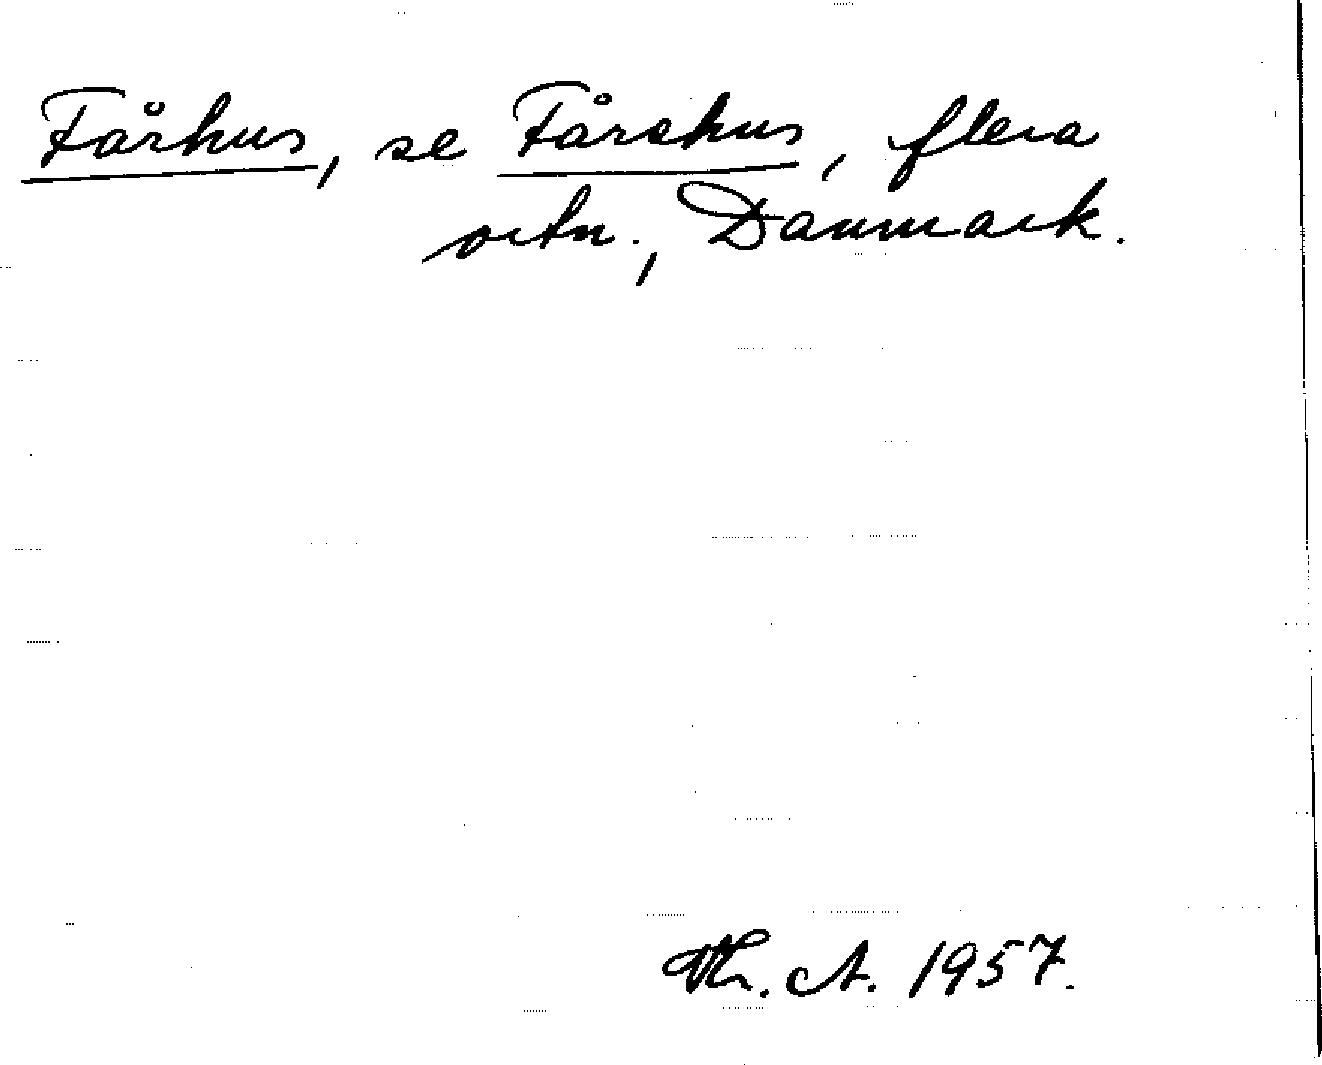 Fårhus, se Fårehus, flera
ortn., Danmark.
Th. A. 1957.